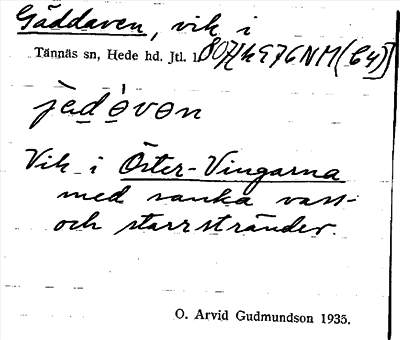 Gäddaven, vik i
Tännäs sn, Hede hd. Jtl. l.
jed
Vik i Öster-Vingarna
med sanka vass-
och starrstränder.
O. Arvid Gudmundson 1935.